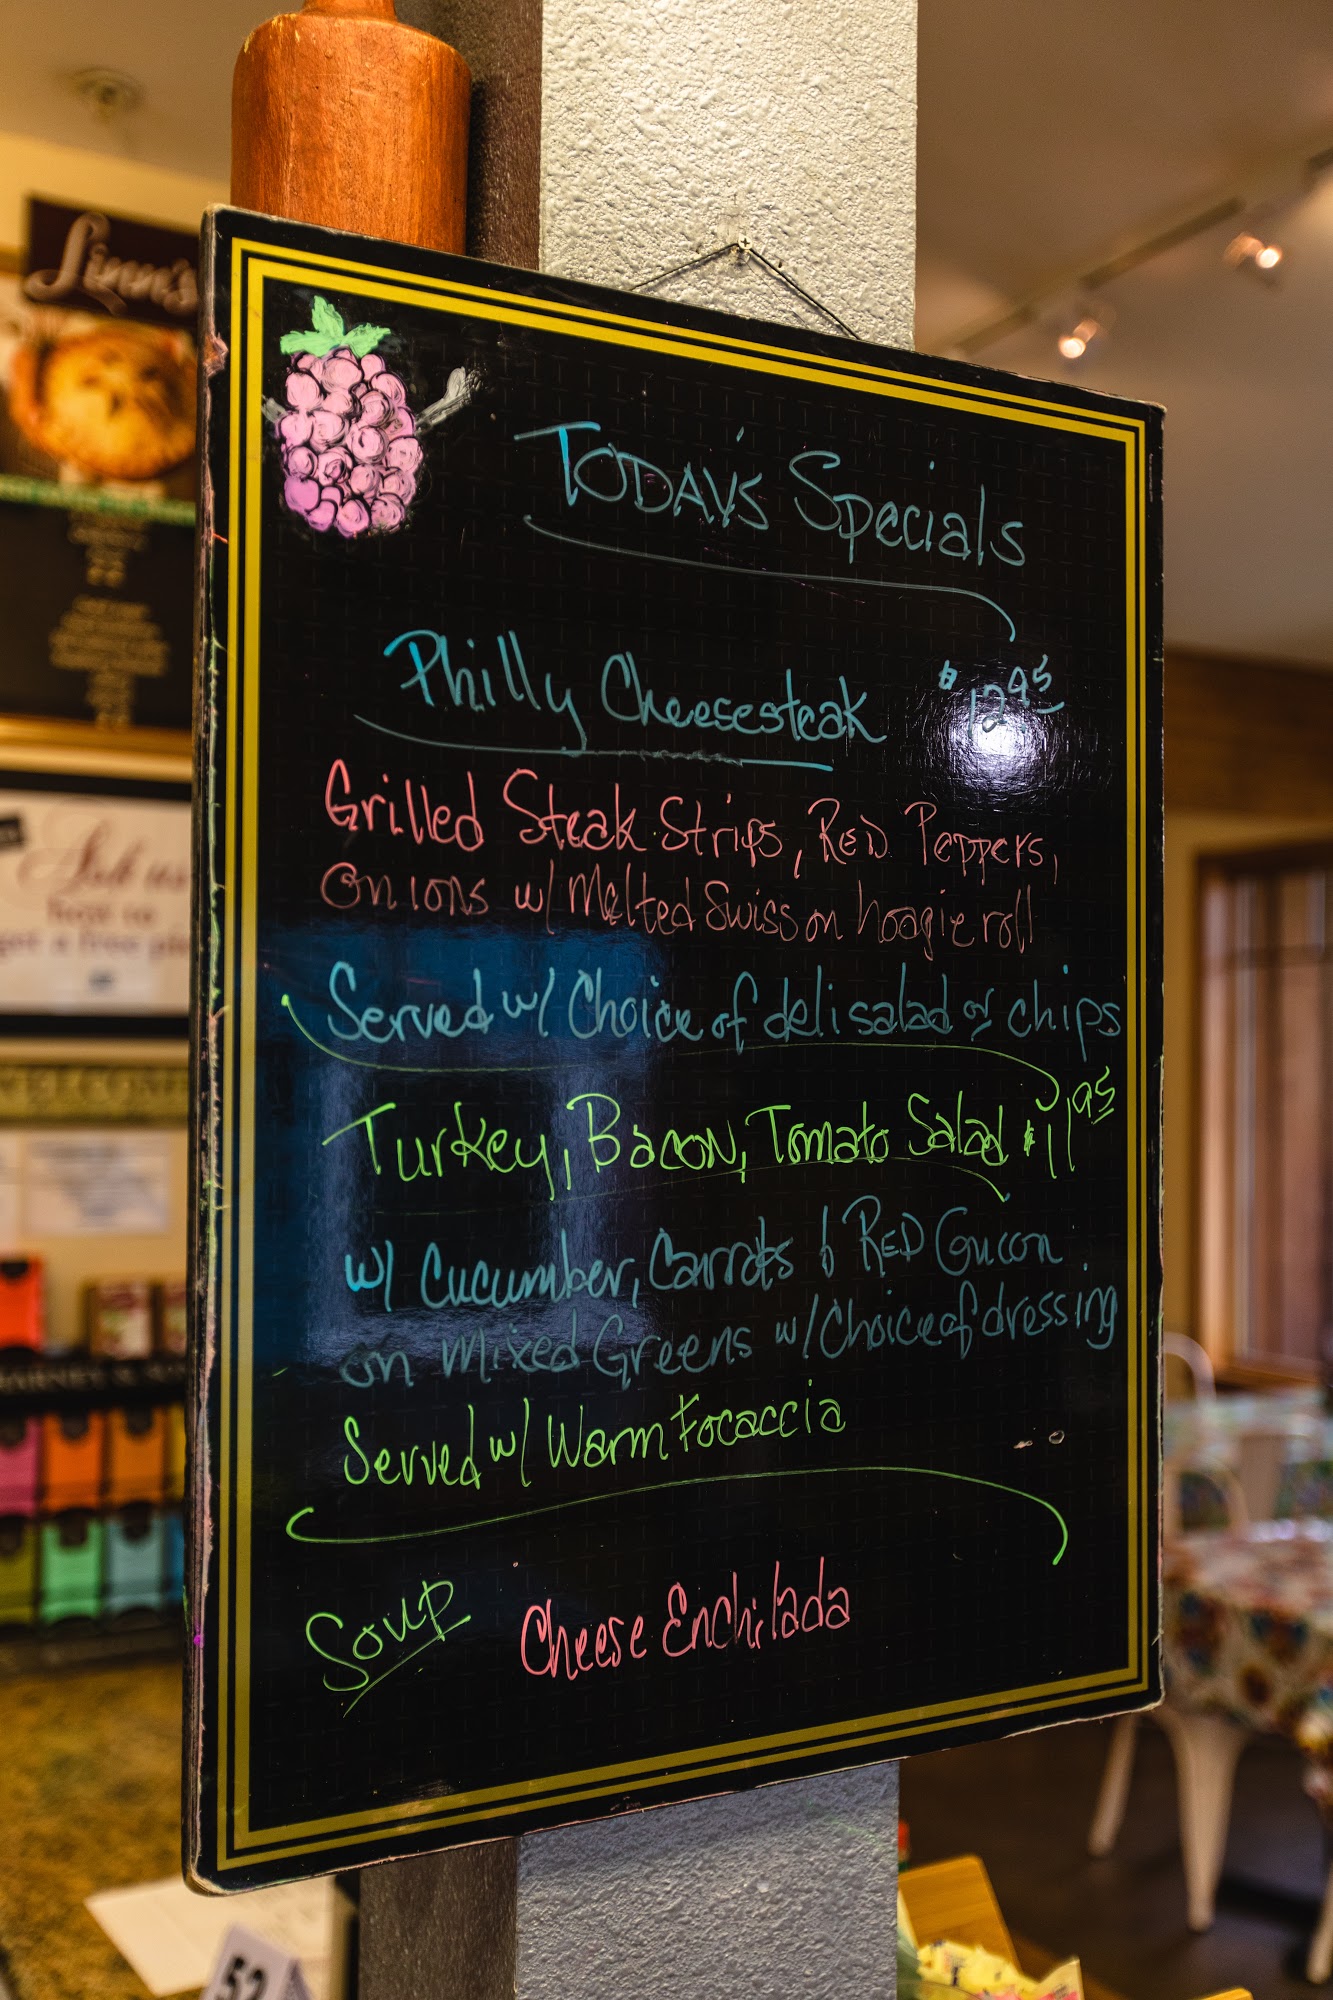 Linn's
TODAY'S Specials
Philly Cheesesteak $12.95
Grilled Steak Strips, RED Peppers,
Onions w/ Melted Swiss on hoagie roll
Served w/ Choice of deli salad or chips
Turkey, Bacon, Tomato Salad $11.95
w/ Cucumber, Carrots & RED Onion
on Mixed Greens w/ Choice of dressing
Served w/ Warm Focaccia
Soup Cheese Enchilada
Ask us
how to
get a free
WELCOME
52